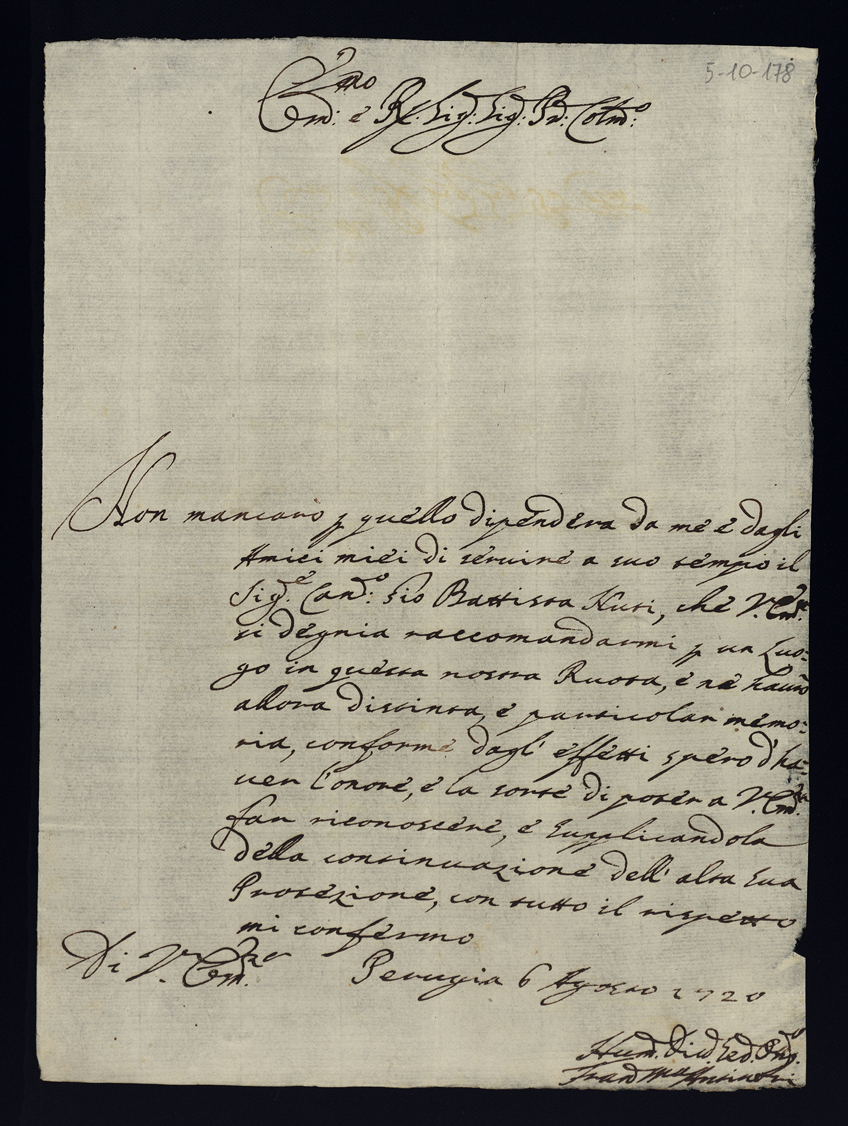 5-10-178
Em:mo e R: Sig: Sig: Pr: Colmo:
Non mancarò p quello dipenderà da me e dagli
Amici miei di servire a suo tempo il
Sig:e Can:o Gio Battista Nuti, che V. Em:za
si degnia raccomandarmi p un Luo-
go in questa nostra Ruota, e ne haurò
allora distinta, e particolar memo-
ria, conforme dagl' effetti spero d'ha-
uer l'onore, e la sorte di poter a V. Em:za
far riconoscere, e supplicandola
della continuazione dell' alta sua
Protezione, con tutto il rispetto
mi confermo
Di V. Em:za Perugia 6 Agosto 1720
Hum: Diu: Ed:
Fran: